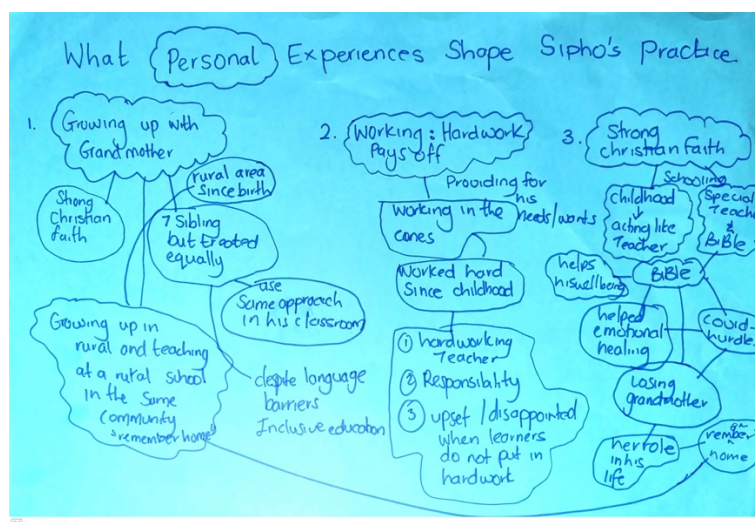 What Personal Experiences Shape Sipho's Practice
1. Growing up with
Grandmother
Strong
Christian
faith
rural area
since birth
7 Sibling
but treated
equally
use
Same approach
in his classroom
Growing up in
rural and teaching
at a rural school
in the same
community
"remember home"
despite language
barriers
Inclusive education
2. Working: Hardwork
Pays off
Providing for
his
needs/wants
working in the
canes
Worked hard
Since childhood
① hardworking
Teacher
② Responsibility
③ upset / disappointed
when learners
do not put in
hardwork
3. Strong
christian faith
Schooling
childhood
↓
acting like
Teacher
Special
Teacher
&
BiBle
BiBle
helps
his wellbeing
helped
emotional
healing
covid-
hurdle
Losing
grandmother
her role
in his
life
home